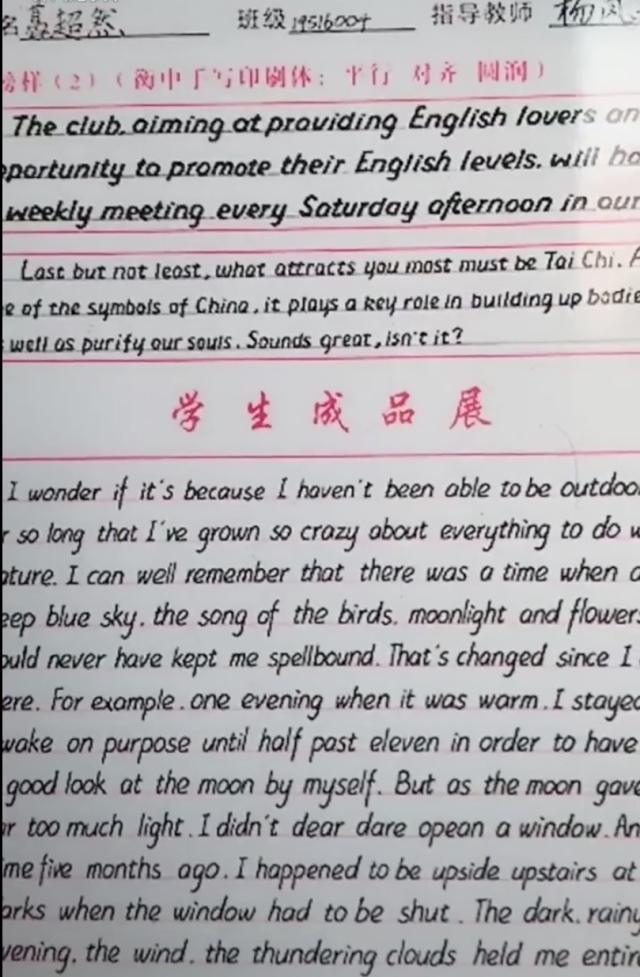 名聂超然 班级 19516004 指导教师 柳风
榜样（2）（衡中手写印刷体：平行 对齐 圆润）
The club, aiming at providing English lovers an
pportunity to promote their English levels, will ho
weekly meeting every Saturday afternoon in our
Last but not least, what attracts you most must be Tai Chi. A
e of the symbols of China, it plays a key role in building up bodie
well as purify our souls. Sounds great, isn't it?
学生成品展
I wonder if it's because I haven't been able to be outdoo
r so long that I've grown so crazy about everything to do w
ature. I can well remember that there was a time when a
eep blue sky, the song of the birds, moonlight and flowers
ould never have kept me spellbound. That's changed since I
ere. For example, one evening when it was warm, I stayed
wake on purpose until half past eleven in order to have
good look at the moon by myself. But as the moon gave
ar too much light, I didn't dear dare opean a window. An
ime five months ago, I happened to be upside upstairs at
arks when the window had to be shut. The dark, rainy
vening, the wind, the thundering clouds held me entir